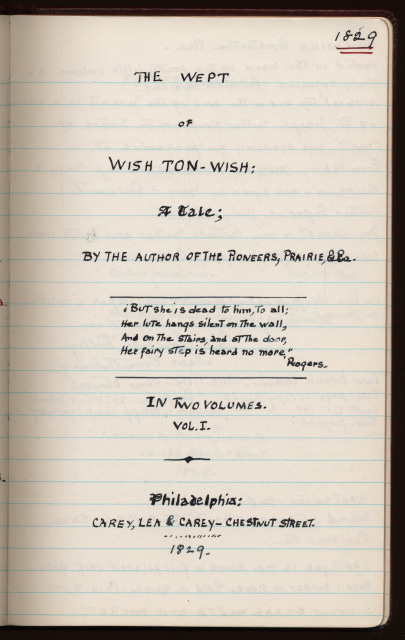 1829
THE WEPT
OF
WISH TON-WISH:
A Tale;
BY THE AUTHOR OF THE PIONEERS, PRAIRIE, &c. &c.
"But she is dead to him, to all;
Her lute hangs silent on the wall,
And on the stairs, and at the door,
Her fairy step is heard no more."
Rogers.
IN TWO VOLUMES.
VOL. I.
Philadelphia:
CAREY, LEA & CAREY - CHESTNUT STREET.
1829.